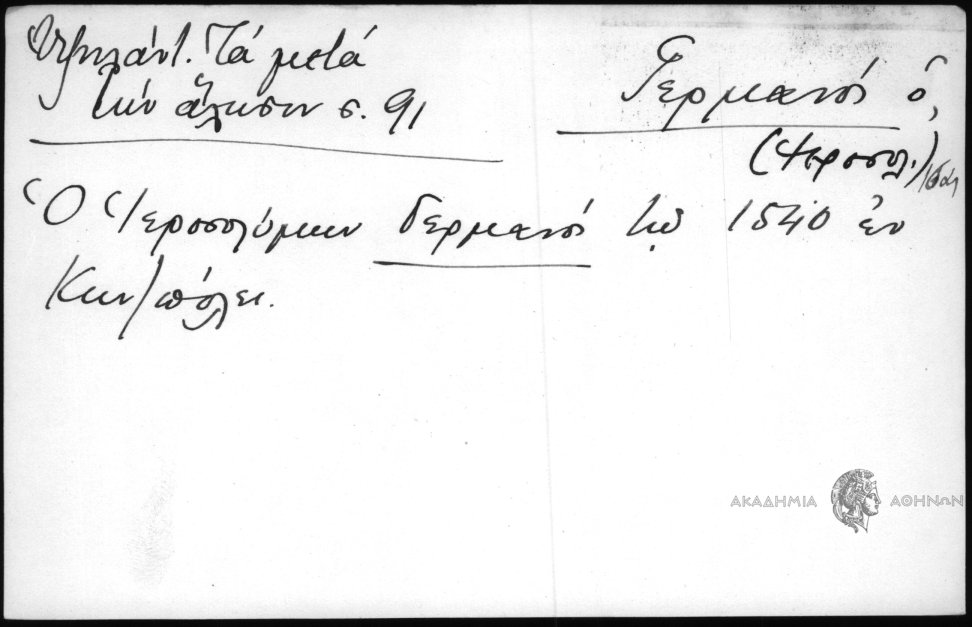 Ὑψηλάντ. Τά μετά
τήν ἅλωσιν σ. 91
Γερμανός ὁ,
(Ἱεροσολ.)
Ὁ Ἱεροσολύμων Γερμανός τῷ 1540 ἐν
Κων/πόλει.
ΑΚΑΔΗΜΙΑ ΑΘΗΝΩΝ